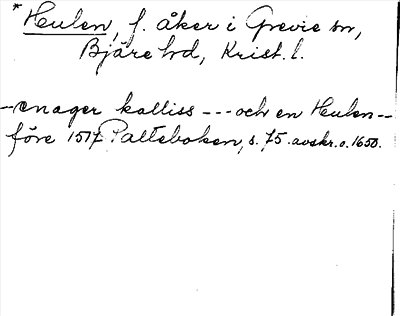 *Hulen, f. åker i Grevie sn,
Bjäre hd, Krist. l.
--enager kalliss --- och en Hulen--
före 1517 Palteboken, s. 75. avskr. o. 1650.